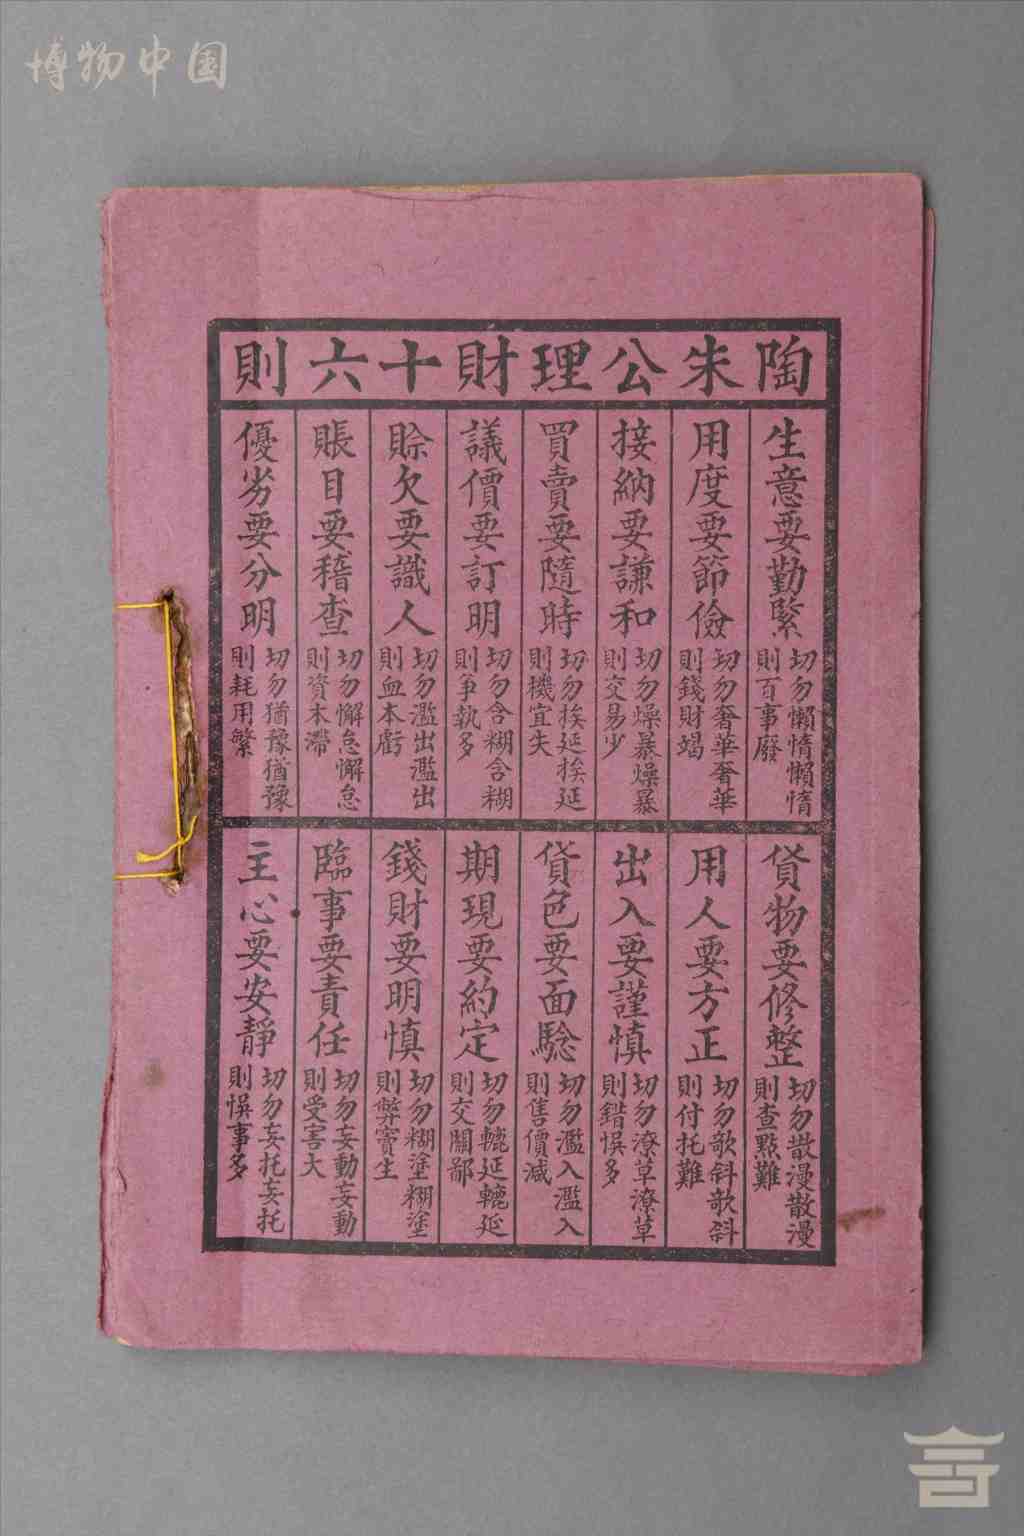 博物中国
陶朱公理財十六則
生意要勤緊
切勿懶惰懶惰
則百事廢
用度要節儉
切勿奢華奢華
則錢財竭
接納要謙和
切勿燥暴燥暴
則交易少
買賣要隨時
切勿挨延挨延
則機宜失
議價要訂明
切勿含糊含糊
則爭執多
賒欠要識人
切勿濫出濫出
則血本虧
賬目要稽查
切勿懈怠懈怠
則資本滯
優劣要分明
切勿猶豫猶豫
則耗用繁
貨物要修整
切勿散漫散漫
則查點難
用人要方正
切勿歌斜歌斜
則付托難
出入要謹慎
切勿潦草潦草
則錯悞多
貨色要面驗
切勿濫入濫入
則售價減
期現要約定
切勿轆延轆延
則交關鄙
錢財要明慎
切勿糊塗糊塗
則弊竇生
臨事要責任
切勿妄動妄動
則受害大
主心要安靜
切勿妄托妄托
則悞事多